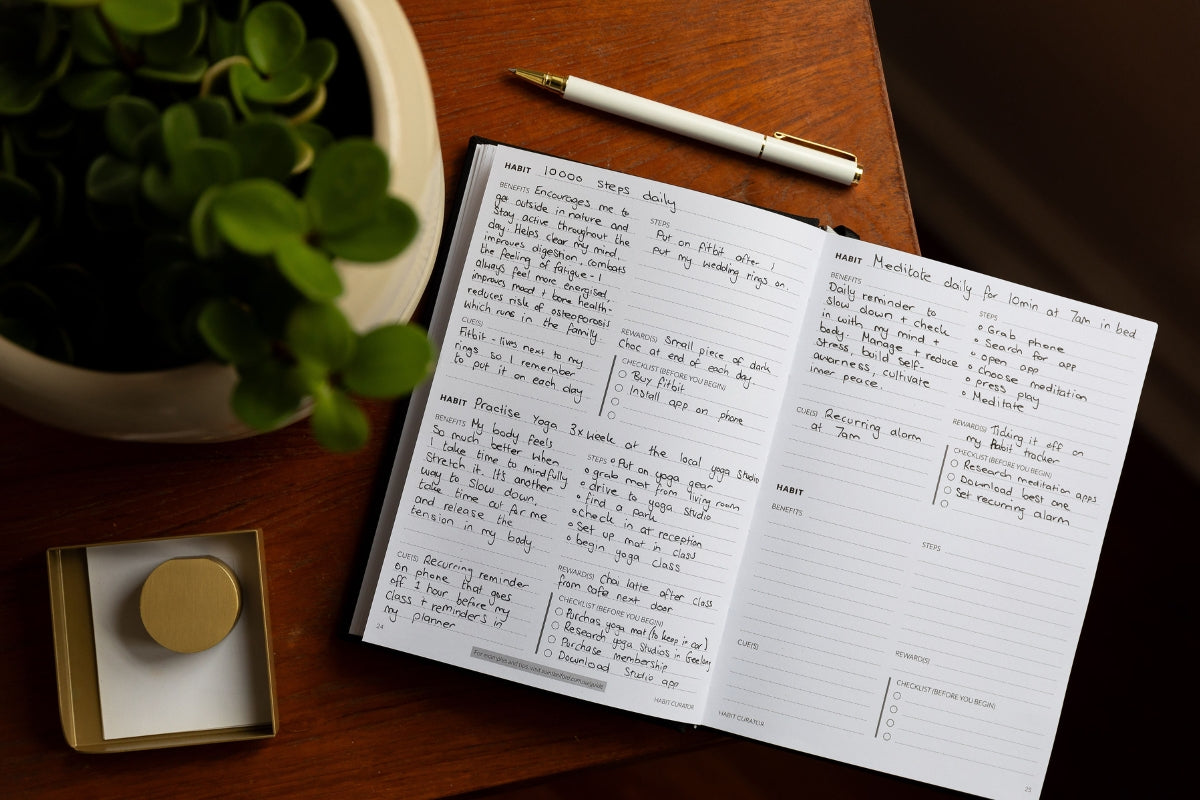 HABIT 10000 steps daily
BENEFITS Encourages me to
get outside in nature and
Stay active throughout the
day. Helps clear my mind,
improves digestion, combats
the feeling of fatigue - I
always feel more energised,
improves mood + bone health -
reduces risk of osteoporosis
which runs in the family.
CUE(S)
Fitbit - lives next to my
rings so I remember
to put it on each day
STEPS
Put on fitbit after I
put my wedding rings on.
REWARD(S) Small piece of dark
choc at end of each day.
CHECKLIST (BEFORE YOU BEGIN)
Buy fitbit
Install app on phone
HABIT Practise Yoga 3x week at the local yoga studio
BENEFITS My body feels
So much better when
I take time to mindfully
Stretch it. It's another
way to slow down,
take time out for me
and release the
tension in my body.
CUE(S) Recurring reminder
on phone that goes
off 1 hour before my
class + reminders in
my planner
STEPS Put on yoga gear
grab mat from living room
drive to yoga studio
find a park
Check in at reception
Set up mat in class
begin yoga class
REWARD(S) Chai latte after class
from cafe next door
CHECKLIST (BEFORE YOU BEGIN)
Purchas yoga mat (to keep in car)
Research yoga studios in Geelong
Purchase membership
Download studio app
24
For examples and tips, visit
HABIT CURATOR
HABIT Meditate daily for 10min at 7am in bed
BENEFITS
Daily reminder to
slow down + check
in with my mind +
body. Manage + reduce
stress, build self-
awarness, cultivate
inner peace.
CUE(S) Recurring alarm
at 7am
STEPS
Grab phone
Search for app
open app
choose meditation
press play
Meditate
REWARD(S) Ticking it off on
my habit tracker
CHECKLIST (BEFORE YOU BEGIN)
Research meditation apps
Download best one
Set recurring alarm
HABIT
BENEFITS
STEPS
CUE(S)
REWARD(S)
CHECKLIST (BEFORE YOU BEGIN)
HABIT CURATOR
25